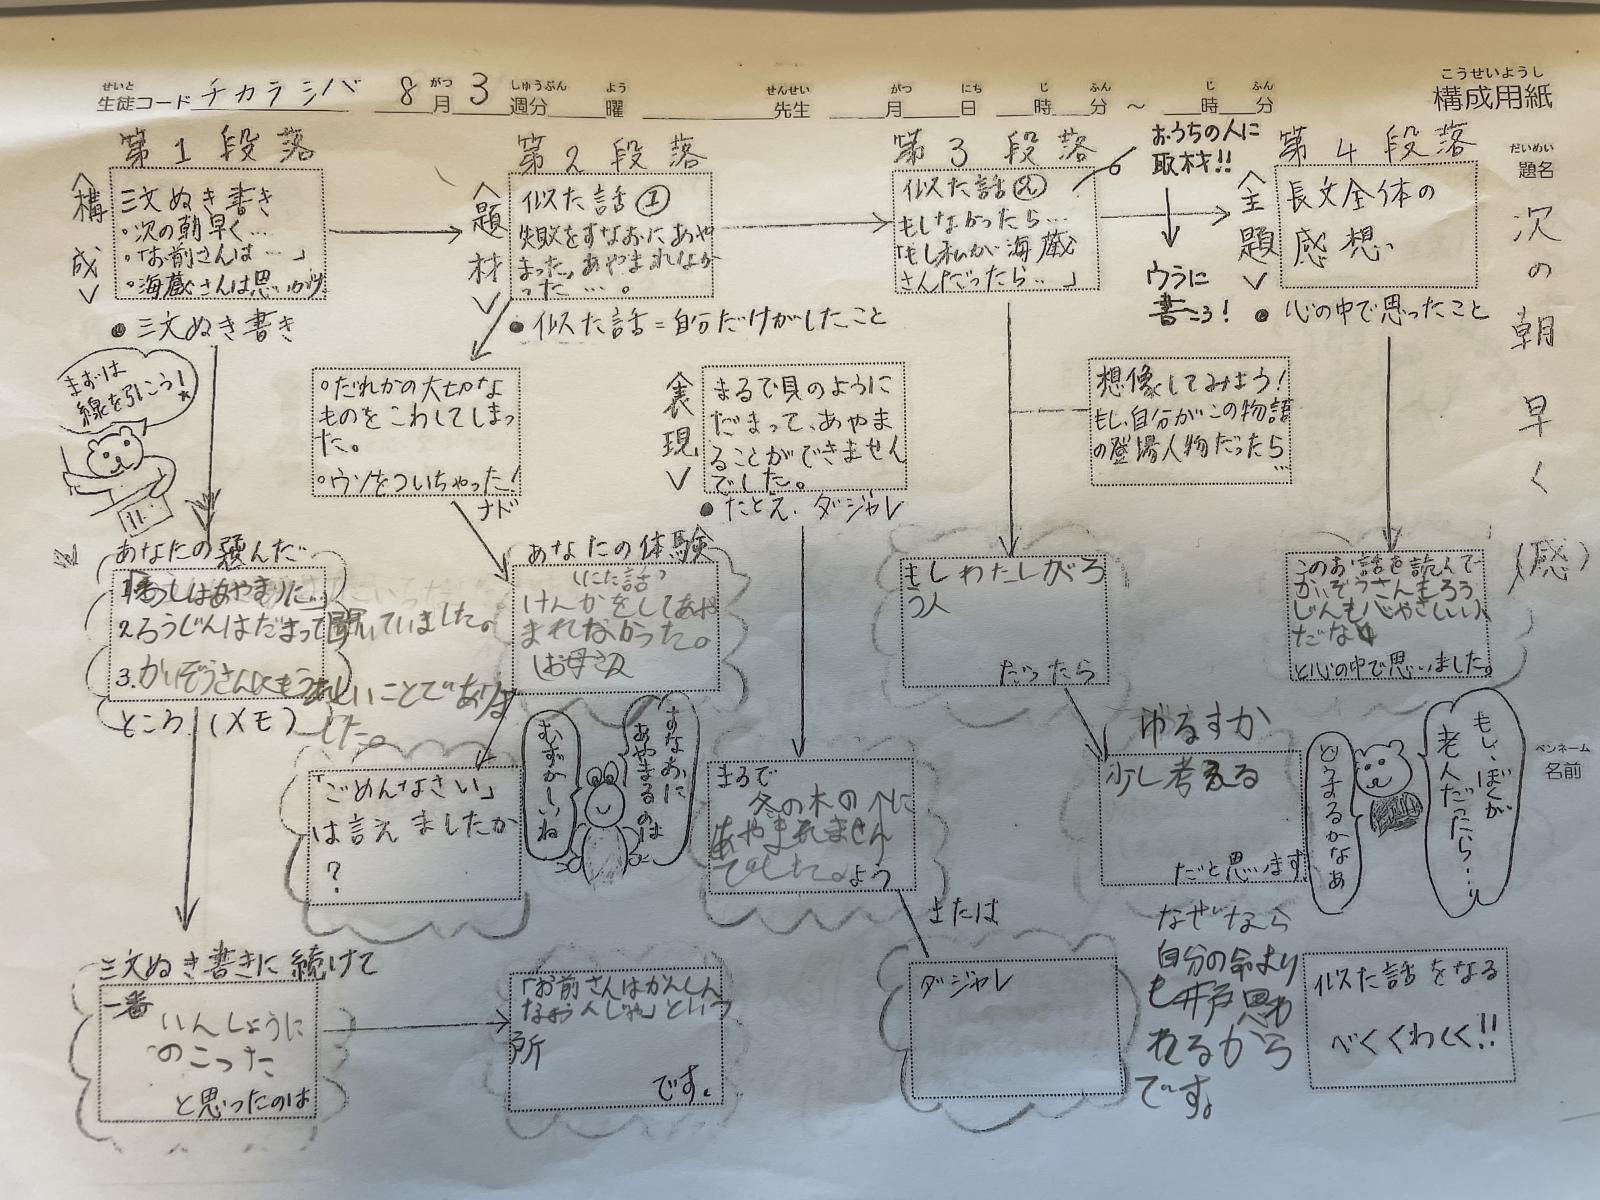 せいと
生徒コード チカラシバ
8 がつ 月 3 しゅうぶん 週分 よう 曜
せんせい 先生
がつ 月 にち 日 じ 時 ふん 分 ～ じ 時 ふん 分
こうせいようし
構成用紙
だいめい
題名
次の朝早く
(感)
ペンネーム
名前
第1段落
<構成>
三文ぬき書き
・次の朝早く…
・「お前さんは…」
・海蔵さんは思いがけ
●三文ぬき書き
まずは
線を引こう!
第2段落
<題材>
似た話①
失敗をすなおにあや
まった,あやまれなか
った…。
●似た話=自分だけがしたこと
第3段落
似た話②
もしなかったら…
「もし私が海蔵
さんだったら…」
おうちの人に
取材!!
ウラに
書こう!
第4段落
<主題>
長文全体の
感想
●心の中で思ったこと
○だれかの大切な
ものをこわしてしまっ
た。
○ウソをついちゃった!
ナド
<表現>
まるで貝のように
だまって、あやま
ることができません
でした。
●たとえ.ダジャレ
想像してみよう!
もし、自分がこの物語
の登場人物だったら
あなたの選んだ
1.わしはあやまりに…
2.ろうじんはだまって聞いていました。
3.かいぞうさんにもうれしいことでありま
した。
ところ(メモ)
あなたの体験
(にた話)
けんかをしてあや
まれなかった。
(お母さん
もしわたしがろ
う人
だったら
このお話を読んで
かいぞうさんもろう
じんも心やさしい人
だな
と心の中で思いました。
「ごめんなさい」
は言えましたか
?
すなおに
あやまるのは
むずかしいね
まるで
冬の木の
あやまれません
でした。よう
または
ゆるすか
少し考える
だと思います。
もし、ぼくが
老人だったら…
どうするかなぁ
なぜなら
自分の命より
も井戸思わ
れるから
です。
三文ぬき書きに続けて
一番
いんしょうに
のこった
と思ったのは
「お前さんはかんしん
なおんじゃ」という
所
です。
ダジャレ
似た話をなる
べくくわしく!!